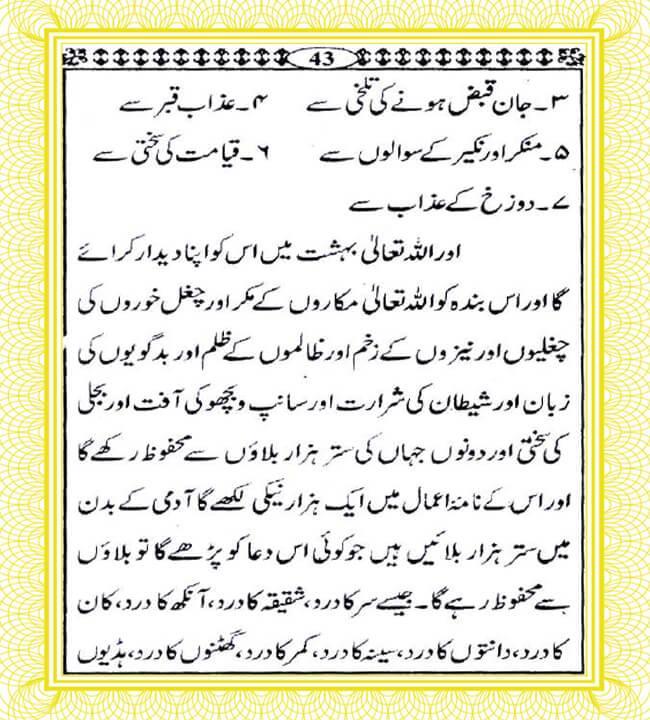 43
۳۔ جان قبض ہونے کی تلخی سے ۴۔ عذاب قبر سے
۵۔ منکر اور نکیر کے سوالوں سے ۶۔ قیامت کی سختی سے
۷۔ دوزخ کے عذاب سے
اور اللہ تعالیٰ بہشت میں اس کو اپنا دیدار کرائے
گا اور اس بندہ کو اللہ تعالیٰ مکاروں کے مکر اور چغل خوروں کی
چغلیوں اور نیزوں کے زخم اور ظالموں کے ظلم اور بدگویوں کی
زبان اور شیطان کی شرارت اور سانپ و بچھو کی آفت اور بجلی
کی سختی اور دونوں جہاں کی ستر ہزار بلاؤں سے محفوظ رکھے گا
اور اس کے نامۂ اعمال میں ایک ہزار نیکی لکھے گا آدمی کے بدن
میں ستر ہزار بلائیں ہیں جو کوئی اس دعا کو پڑھے گا تو بلاؤں
سے محفوظ رہے گا۔ جیسے سر کا درد، شقیقہ کا درد، آنکھ کا درد، کان
کا درد، دانتوں کا درد، سینہ کا درد، کمر کا درد، گھٹنوں کا درد، ہڈیوں